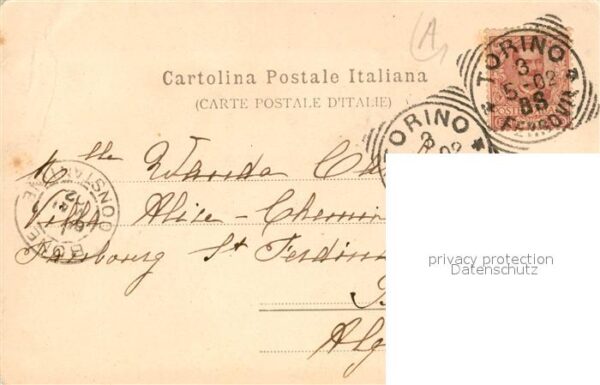 (A
Cartolina Postale Italiana
(CARTE POSTALE D'ITALIE)
TORINO
3
5-02
8S
FERROVIA
TORINO
3
02
Mlle Wanda
Villa Alice - Chemin
Faubourg St Ferdin
Alg
CONSTANTINE
BONE
privacy protection
Datenschutz